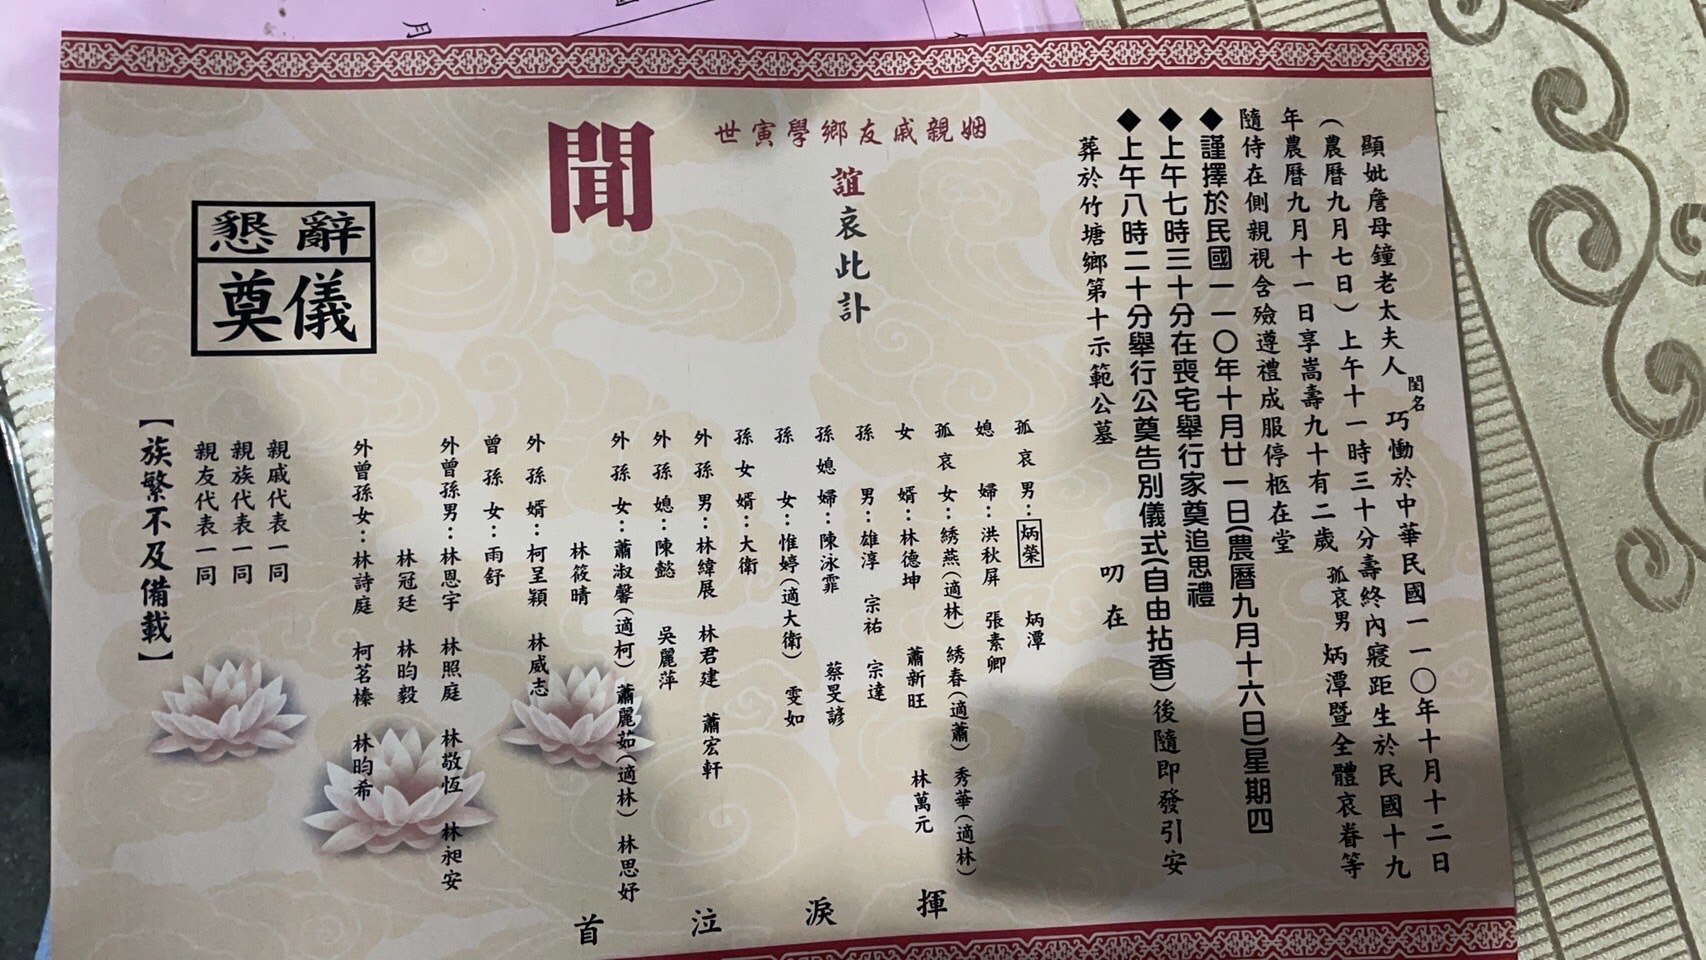 顯妣詹母鐘老太夫人閨名巧慟於中華民國一一〇年十月十二日
(農曆九月七日)上午十一時三十分壽終內寢距生於民國十九
年農曆九月十一日享嵩壽九十有二歲 孤哀男 炳潭暨全體哀眷等
隨侍在側親視含殮遵禮成服停柩在堂
◆謹擇於民國一一〇年十月廿一日(農曆九月十六日)星期四
◆上午七時三十分在喪宅舉行家奠追思禮
◆上午八時二十分舉行公奠告別儀式(自由拈香)後隨即發引安
葬於竹塘鄉第十示範公墓
叨在
姻親戚友鄉學寅世
誼哀此訃
聞
孤哀男:炳榮 炳潭
媳婦:洪秋屏 張素卿
孤哀女:綉燕(適林) 綉春(適蕭) 秀華(適林)
女婿:林德坤 蕭新旺 林萬元
孫男:雄淳 宗祐 宗達
孫媳婦:陳泳霏 蔡旻諺
孫女:惟婷(適大衛) 雯如
孫女婿:大衛
外孫男:林緯展 林君建 蕭宏軒
外孫媳:陳懿 吳麗萍
外孫女:蕭淑馨(適柯) 蕭麗茹(適林) 林思妤
林筱晴
外孫婿:柯呈穎 林威志
曾孫女:雨舒
外曾孫男:林恩宇 林照庭 林敬恆 林昶安
林冠廷 林昀毅
外曾孫女:林詩庭 柯茗榛 林昀希
親戚代表一同
親族代表一同
親友代表一同
【族繁不及備載】
揮淚泣首
懇辭
奠儀
月